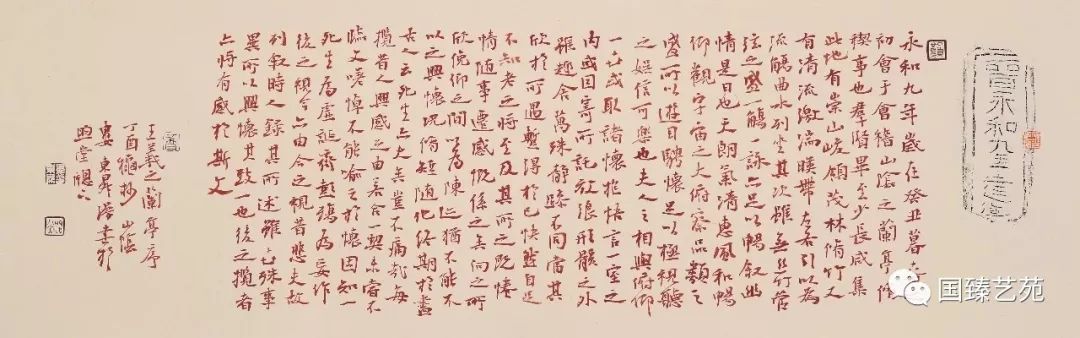 晉永和九年
永和九年歲在癸丑暮春
初會于會稽山陰之蘭亭脩
禊事也群賢畢至少長咸集
此地有崇山峻領茂林脩竹又
有清流激湍暎帶左右引以為
流觴曲水列坐其次雖無絲竹管
弦之盛一觴一詠亦足以暢敘幽
情是日也天朗氣清惠風和暢
仰觀宇宙之大俯察品類之
盛所以遊目騁懷足以極視聽
之娛信可樂也夫人之相與俯仰
一世或取諸懷抱悟言一室之
內或因寄所託放浪形骸之外
雖趣舍萬殊靜躁不同當其
欣於所遇暫得於己快然自足
不知老之將至及其所之既惓
情隨事遷感慨係之矣向之所
欣俛仰之間以為陳迹猶不能不
以之興懷況脩短隨化終期於盡
古人云死生亦大矣豈不痛哉每
攬昔人興感之由若合一契未嘗不
臨文嗟悼不能喻之於懷固知一
死生為虛誕齊彭殤為妄作
後之視今亦由今之視昔悲夫故
列敘時人錄其所述雖世殊事
異所以興懷其致一也後之攬者
亦將有感於斯文
王羲之蘭亭序
丁酉 抄 山陰
婁東 書於
堂
国臻艺苑